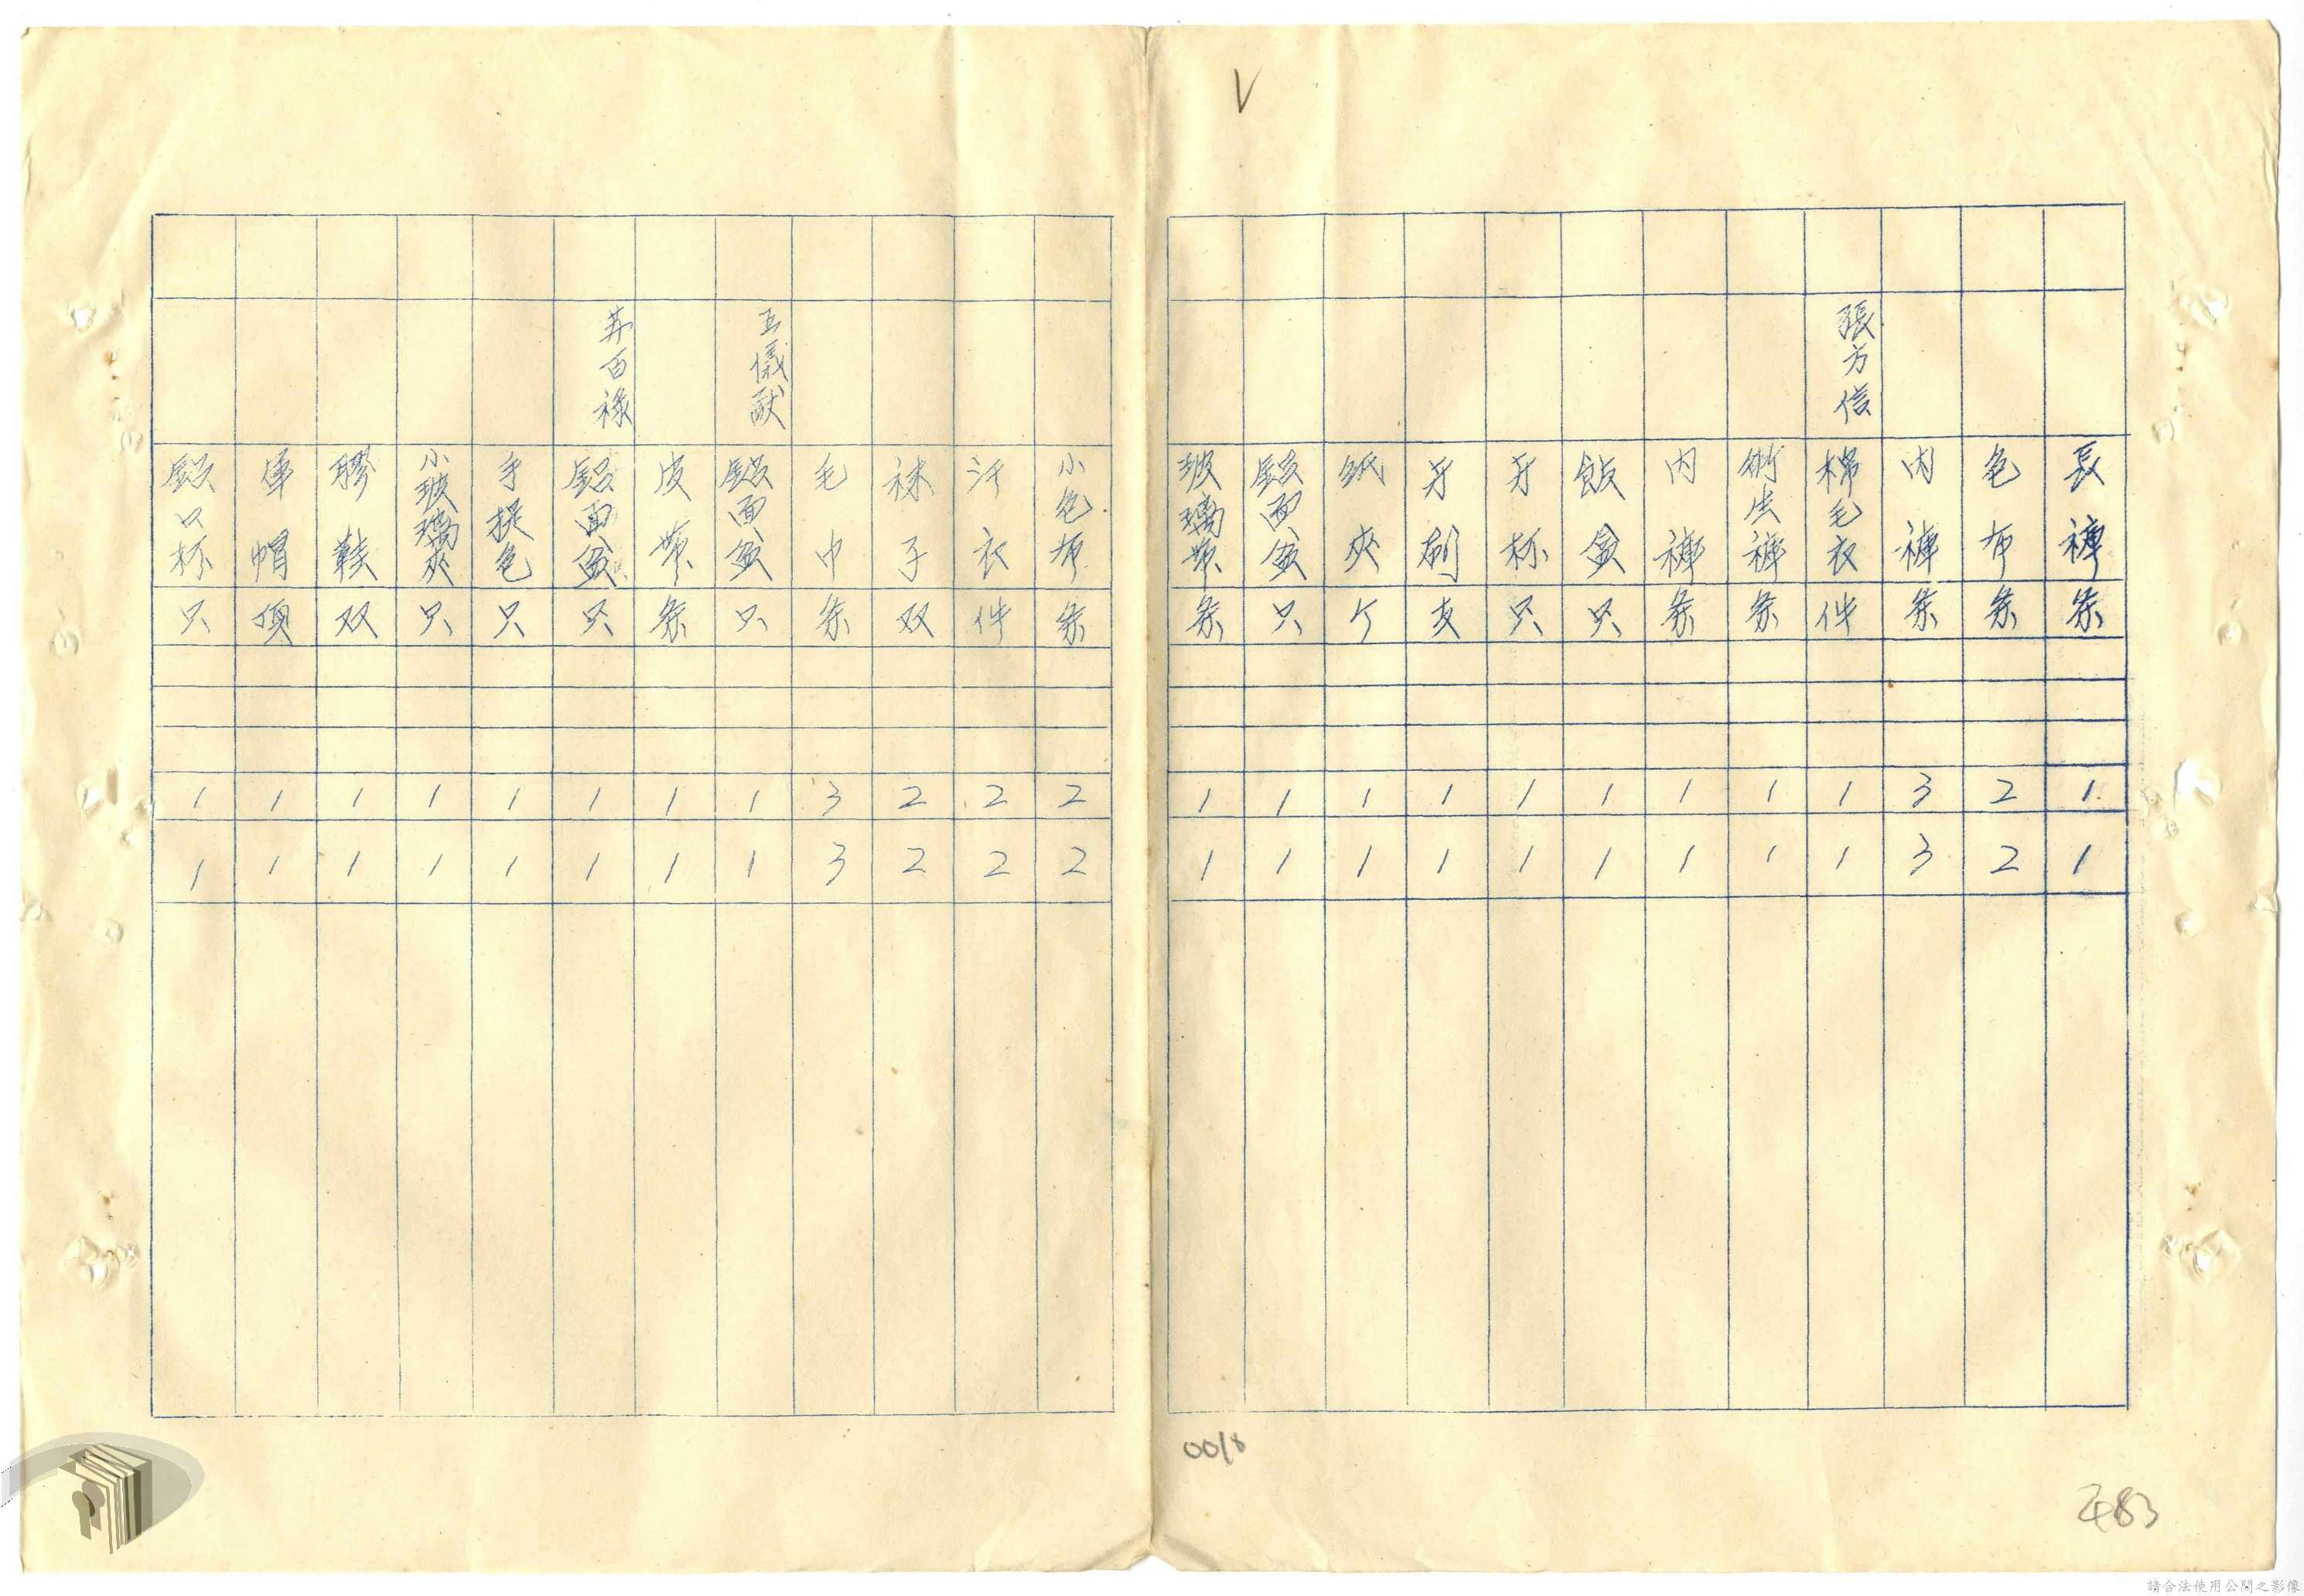 V
長褲 条 1 1
包布 条 2 2
内褲 条 3 3
張方信 棉毛衣 件 1 1
衛生褲 条 1 1
内褲 条 1 1
飯盒 只 1 1
牙杯 只 1 1
牙刷 支 1 1
紙夾 个 1 1
鋁面盆 只 1 1
玻璃帶 条 1 1
小包布 条 2 2
汗衣 件 2 2
袜子 双 2 2
毛巾 条 3 3
王儀猷 鋁面盆 只 1 1
皮帶 条 1 1
百祿 鋁面盆 只 1 1
手提包 只 1 1
小玻璃夾 只 1 1
膠鞋 双 1 1
軍帽 頂 1 1
鋁口杯 只 1 1
0018
483
請合法使用公開之影像